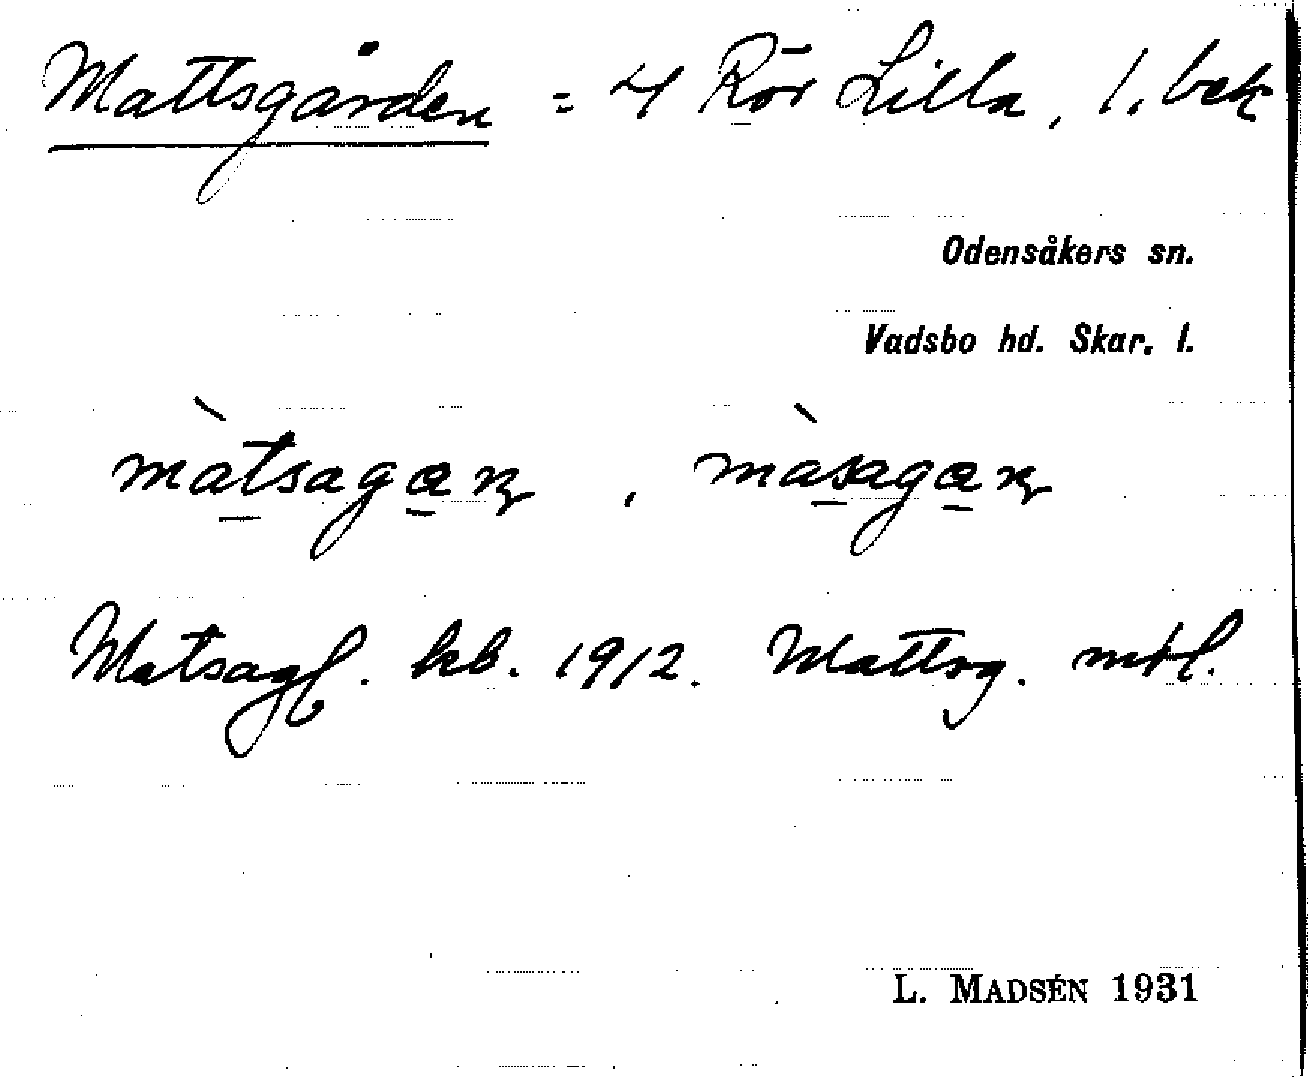 Mattsgården = 4 Rör Lilla, 1. bek
Odensåkers sn.
Vadsbo hd. Skar. l.
màtsagan, màsagan
Matsagf. kb. 1912. Mattsg. mtl.
L. MADSÉN 1931